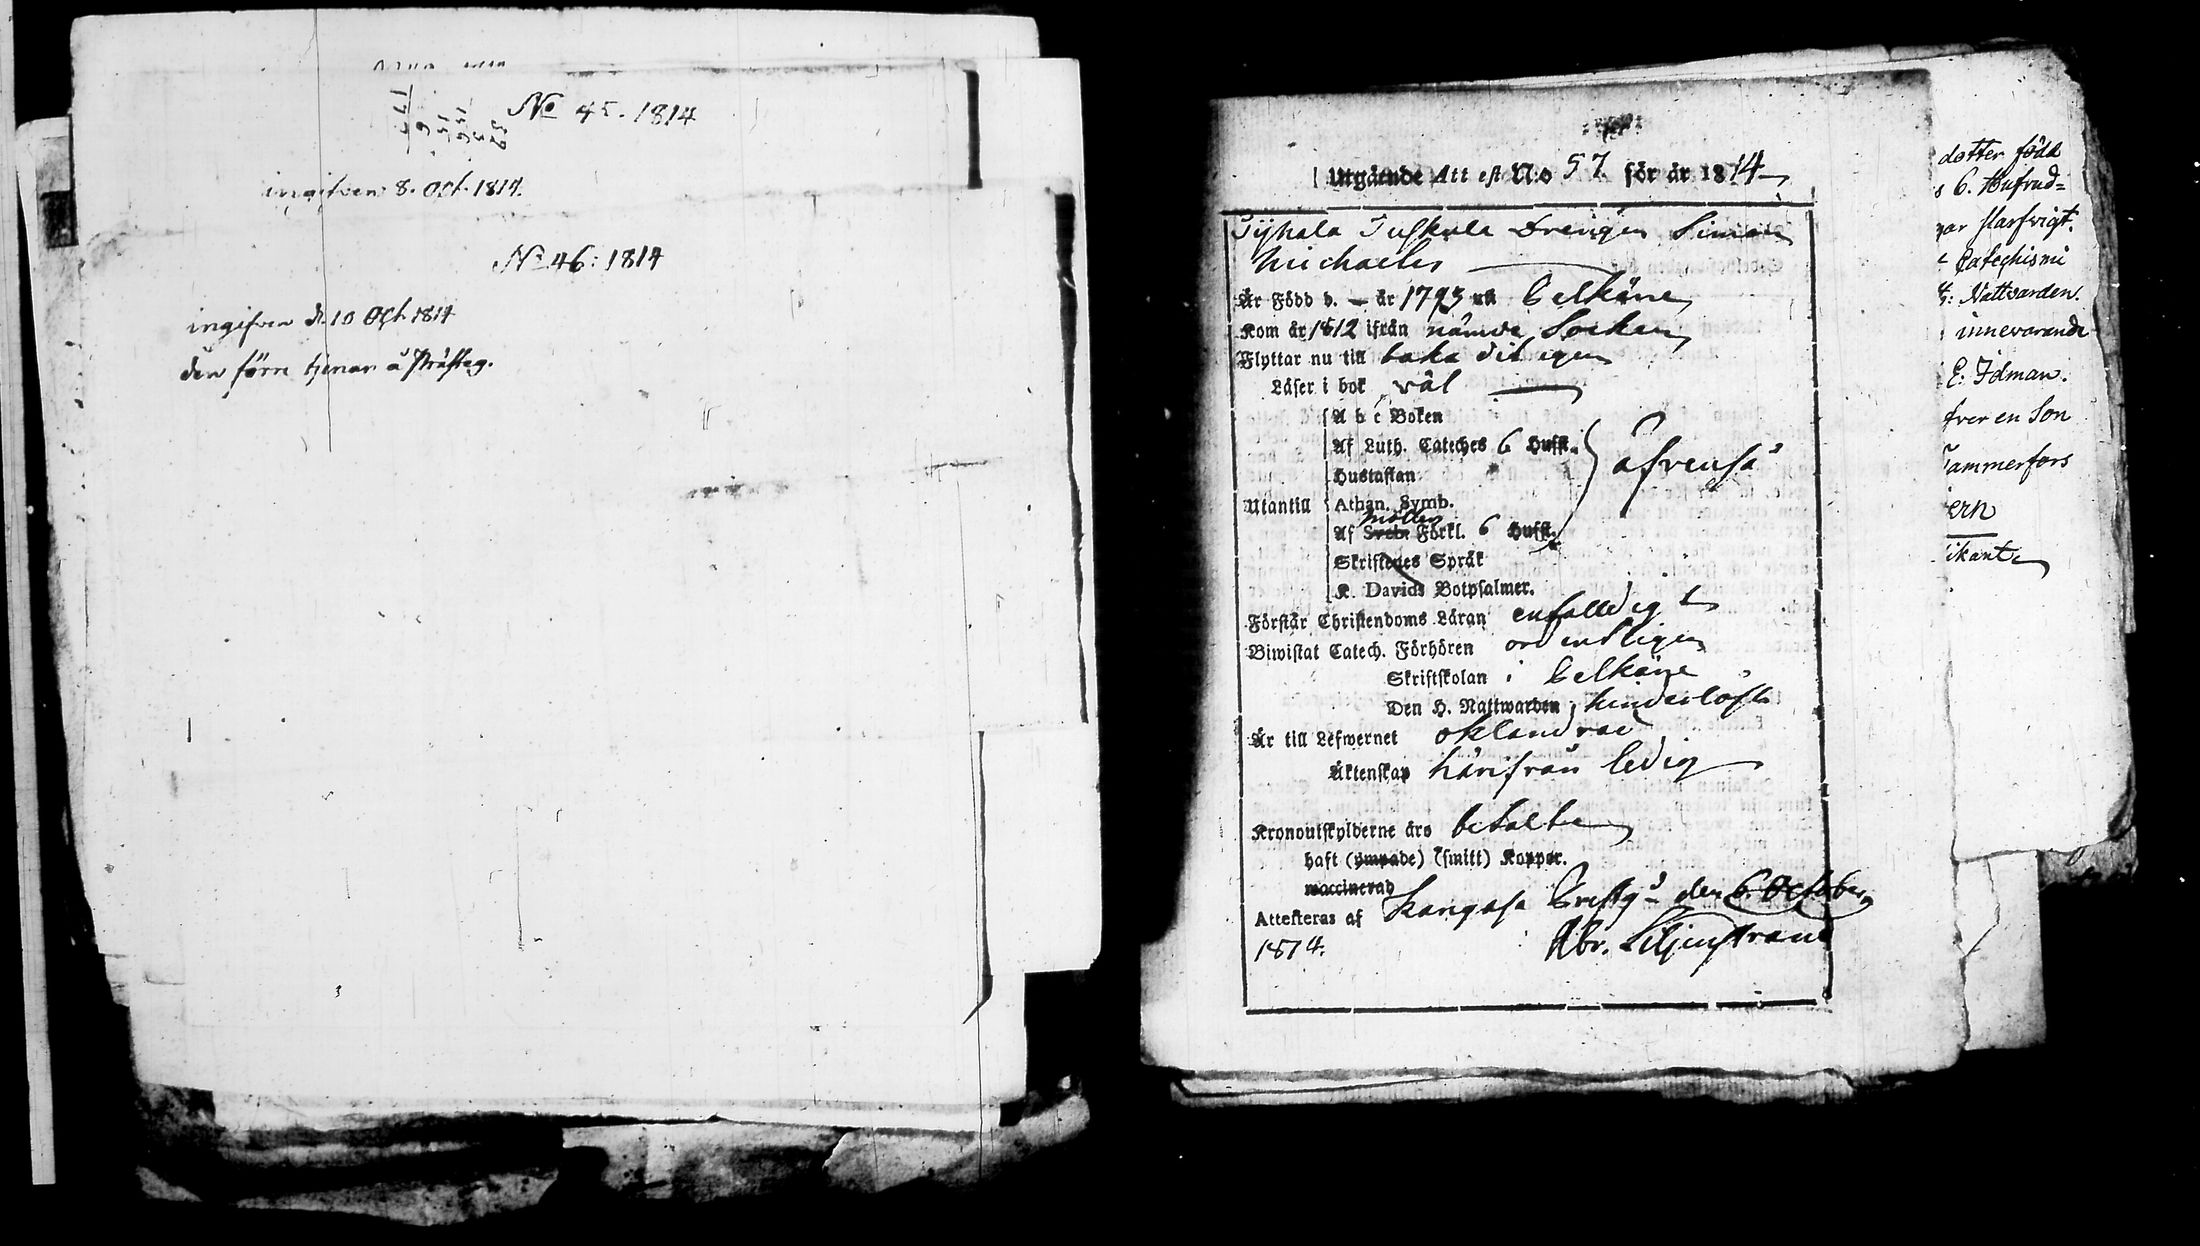 No 45. 1814
ingifven 8. Oct. 1814.
No 46: 1814
ingifven d. 10 Oct 1814
den förra tjenar å
Utgående Attest N:o 57. för år 1814
Drengen Simon
Michaels
Är Född d. — år 1793 uti Celkäne
Kom år 1812 ifrån nämde Socken
Flyttar nu till baka dit igen
Läser i bok väl
A b c Boken
Af Luth. Cateches 6 Hufst.
Hustaflan
äfvenså
Utantill
Athan. Symb.
möllers
Af Sveb. Förkl. 6 Hufst.
Skriftenes Språk
K. Davids Botpsalmer.
Förstår Christendoms Läran enfalldigt
Biwistat Catech. Förhören ordentligen
Skriftskolan i Celkäne
Den H. Nattwarden hinderlöst
Är till Lefwernet oklandrad
Äktenskap härifrån ledig
Kronoutskylderne äro betalte
haft (ympade) (smitt) Koppor.
waccinerad
Attesteras af Kangasa den 6. October
1814. Abr. Liljenstrand
dotter född
6. Hufvud=
Catechismi
Nattvarden.
innevarande
E: Idman.
fver en Son
ammerfors
ern
ikant